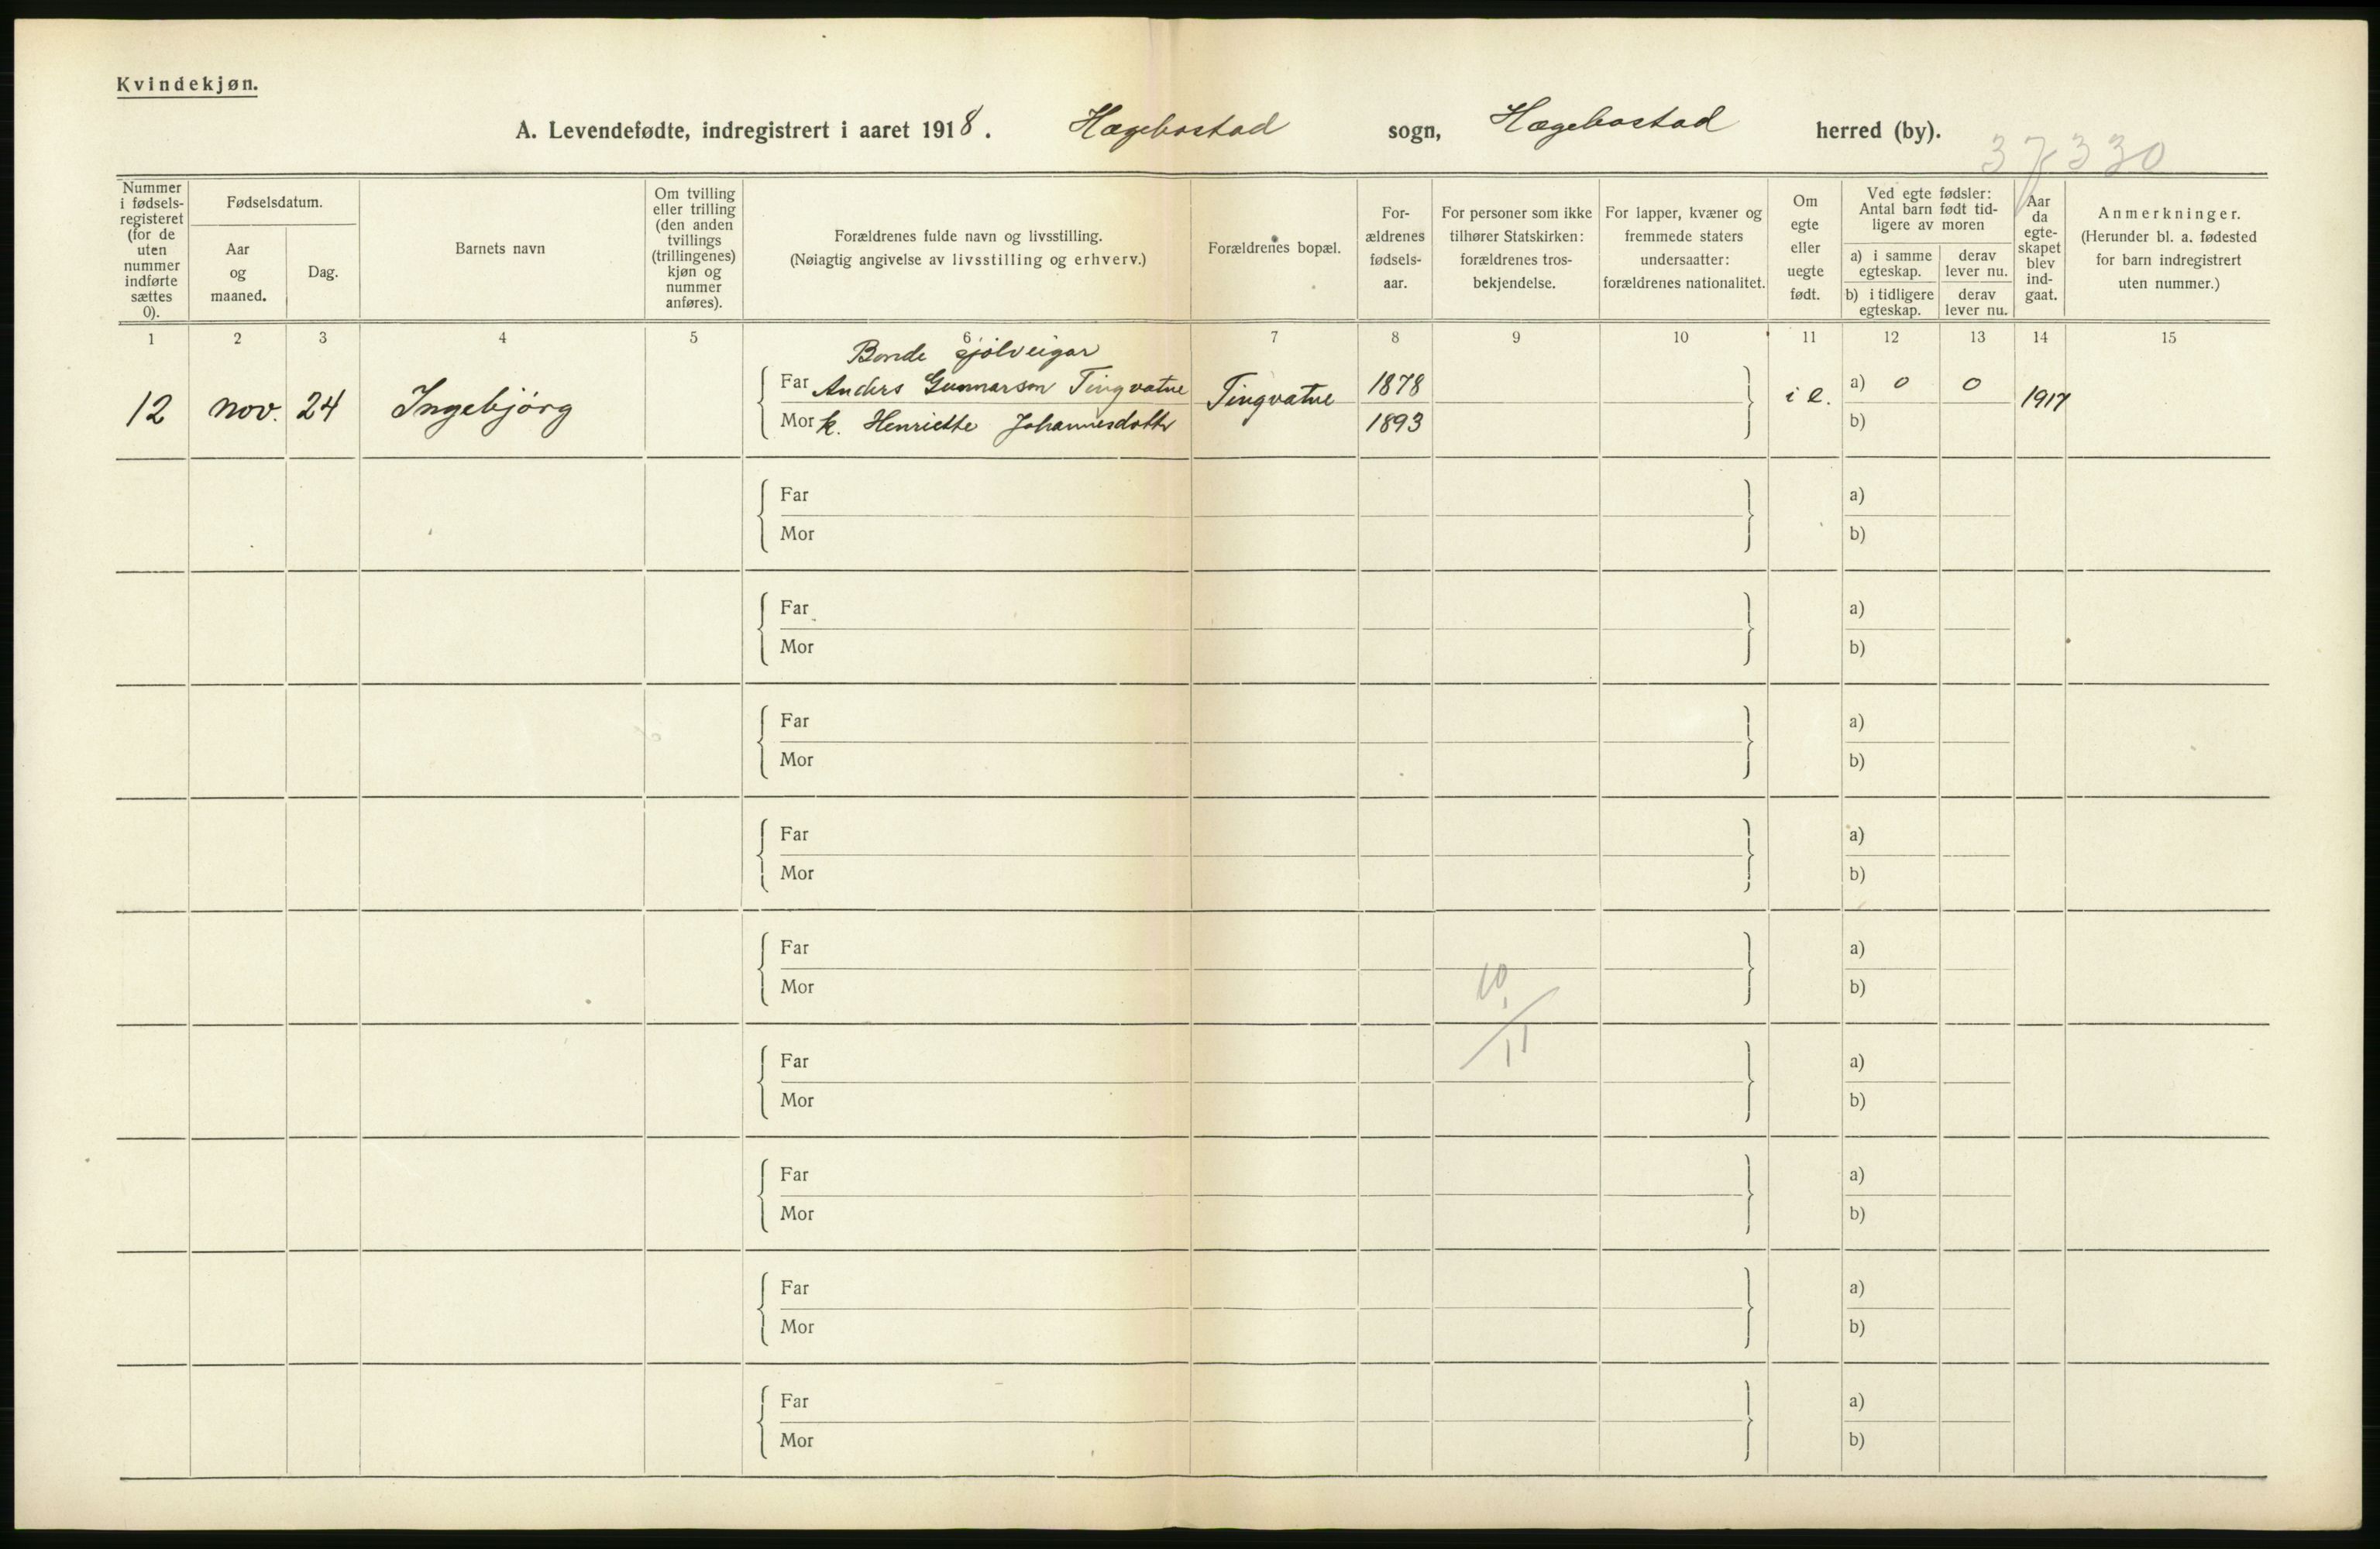 Kvindekjøn.
A. Levendefødte, indregistrert i aaret 1918. Hægebostad sogn, Hægebostad herred (by).
37330
Nummer i fødsels-registeret (for de uten nummer indførte sættes 0).
Fødselsdatum.
Aar og maaned.
Dag.
Barnets navn
Om tvilling eller trilling (den anden tvillings (trillingenes) kjøn og nummer anføres).
Forældrenes fulde navn og livsstilling.
(Nøiagtig angivelse av livsstilling og erhverv.)
Forældrenes bopæl.
For-ældrenes fødsels-aar.
For personer som ikke tilhører Statskirken: forældrenes tros-bekjendelse.
For lapper, kvæner og fremmede staters undersaatter: forældrenes nationalitet.
Om egte eller uegte født.
Ved egte fødsler: Antal barn født tid-ligere av moren
a) i samme egteskap.
derav lever nu.
b) i tidligere egteskap.
derav lever nu.
Aar da egte-skapet blev ind-gaat.
Anmerkninger.
(Herunder bl. a. fødested for barn indregistrert uten nummer.)
1 2 3 4 5 6 7 8 9 10 11 12 13 14 15
Bonde sjølveigar
12 nov. 24 Ingebjørg Far Anders Gunnarson Tingvatne Tingvatne 1878 i e. a) 0 0 1917
Mor k. Henriette Johannesdotter 1893 b)
Far a)
Mor b)
Far a)
Mor b)
Far a)
Mor b)
Far a)
Mor b)
Far a)
Mor 10 b)
Far 11 a)
Mor b)
Far a)
Mor b)
Far a)
Mor b)
Far a)
Mor b)